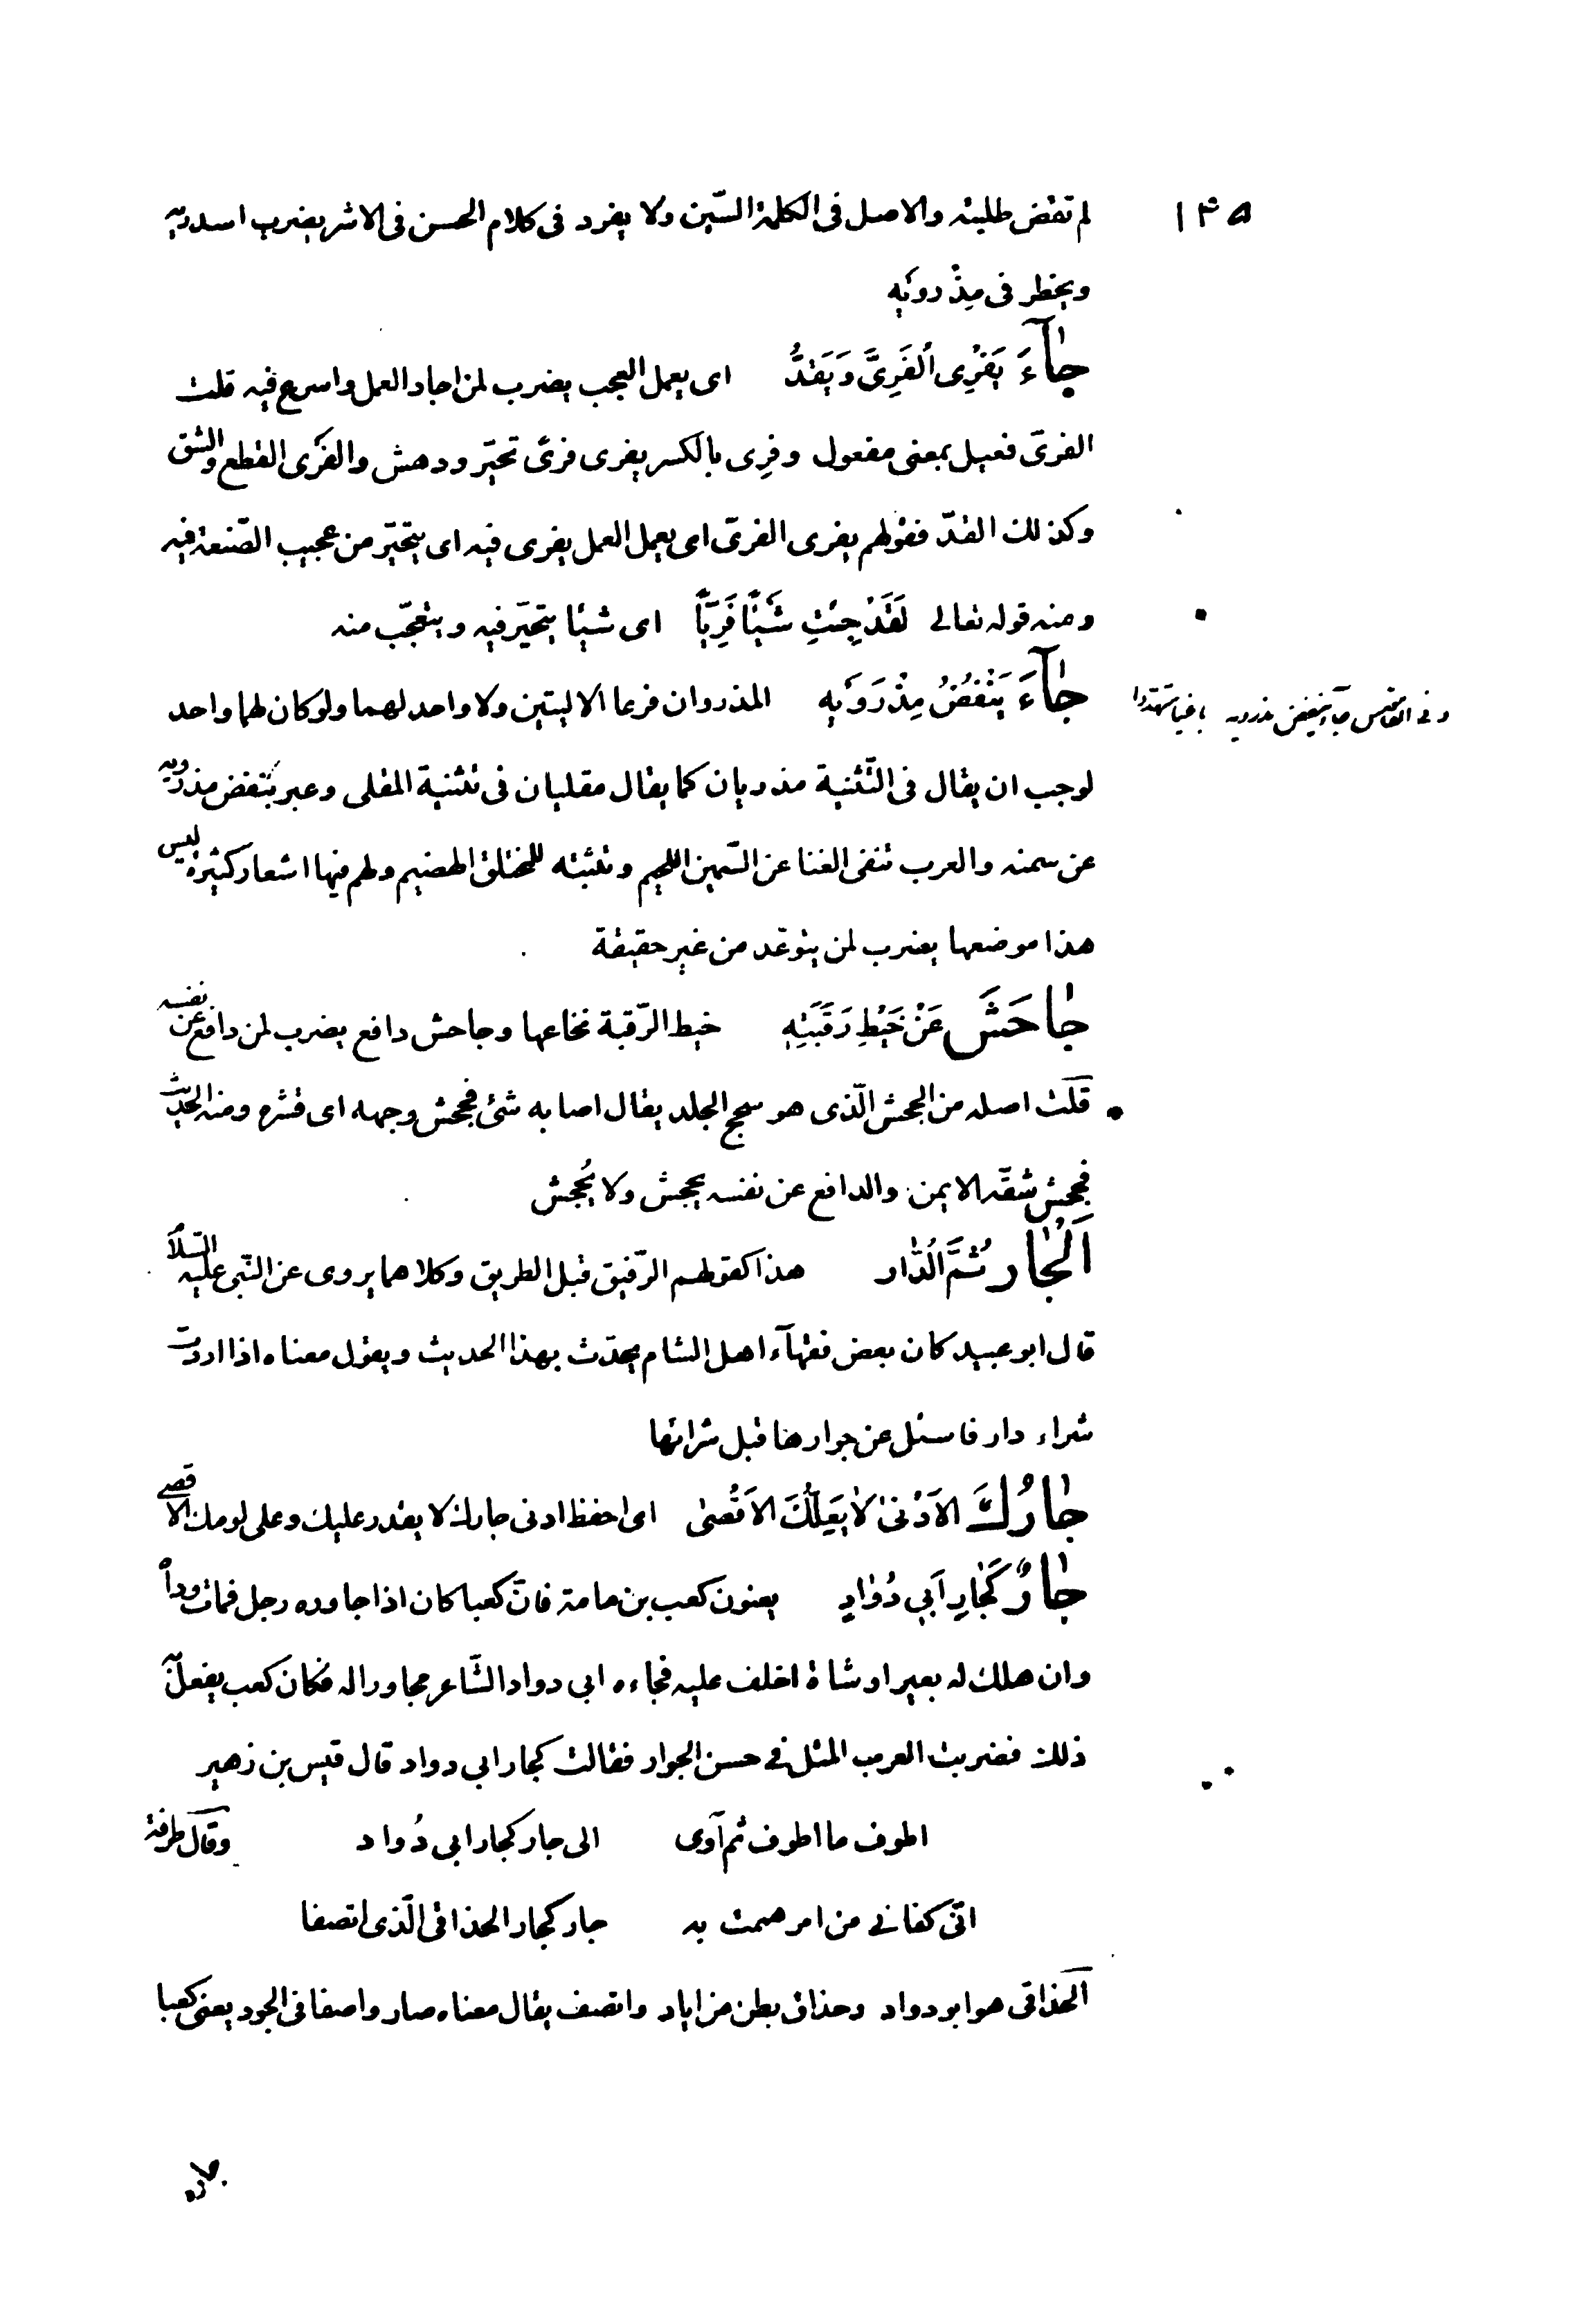 ١٣٥
لم تقض طلبته والاصل فى الكلمة السّين ولا يفرد فى كلام الحسن فى الاشر يضرب اسدريه
ويخطر فى مِذْرويْه
جٰآءَ يَفْرِى الْفَرِىَّ وَيَقُدُّ اى يعمل العجب يضرب لمن اجاد العمل واسرع فيه قلت
الفرىّ فعيل بمعنى مفعول وفرِى بالكسر يفرى فرىً تحيّر ودهش والفَرْى القطع والشق
وكذلك القدّ فقولهم يفرى الفرىّ اى يعمل العمل يفرى فيه اى يتحيّر من عجيب الصّنعة فيه
ومنه قوله تعالى لَقَدْ جِئْتِ شَيْئًا فَرِيّاً اى شيئا يتحيّر فيه ويتعجّب منه
جٰآءَ يَنْفُضُ مِذْرَوَيْهِ المذروان فرعا الاليتين ولا واحد لهما ولو كان لهما واحد
جآء ينفض مذرويه باغيا متهددا
لوجب ان يقال فى التّثنية مذريان كما يقال مقليان فى تثنية المقلى وعبر بنفض مذرويه
عن سمنه والعرب تنفى الغنا عن السّمين اللحيم وتثبته للمختلق الهضيم ولهم فيها اشعار كثيرة ليس
هذا موضعها يضرب لمن يتوعّد من غير حقيقة
جٰاحَشَ عَنْ خَيْطِ رَقَبَتِهِ خيط الرّقبة نخاعها وجاحش دافع يضرب لمن دافع عن نفسه
قلت اصله من الجحش الّذى هو سحج الجلد يقال اصابه شئ فجحش وجهه اى قشره ومنه الحديث
فجحش شقّه الايمن والدافع عن نفسه يجحش ولا يُجحش
اَلْجٰار ثُمَّ الدّٰار هذا كقولهم الرّفيق قبل الطريق وكلاهما يروى عن النّبى عليه السّلام
قال ابو عبيد كان بعض فقهآء اهل الشام يحدّث بهذا الحديث ويقول معناه اذا اردت
شراء دار فاسئل عن جوارها قبل شرائها
جٰارُكَ الاَدْنىٰ لاٰ يَعْلَكَ الاَقْصىٰ اى احفظ ادنى جارك لا يقدر عليك وعلى لومك الاقصى
جٰارٌ كَجٰارِ اَبِى دُوٰادٍ يعنون كعب بن مامة فانّ كعبا كان اذا جاوره رجل فمات وداه
وان هلك له بعير او شاة اخلف عليه فجاءه ابى دواد الشّاعر مجاورا له فكان كعب يفعل له
ذلك فضربت العرب المثل فى حسن الجوار فقالت كجار ابى دواد قال قيس بن زهير
اطوف ما اطوف ثم آوى الى جار كجار ابى دُواد وقال طرفة
انّى كفانى من امر هممت به جار كجار الحذاقى الّذى اتصفا
الحذاقى هو ابو دواد وحذاق بطن من اياد واتصف يقال معناه صار واصفا فى الجود يعنى كعبا